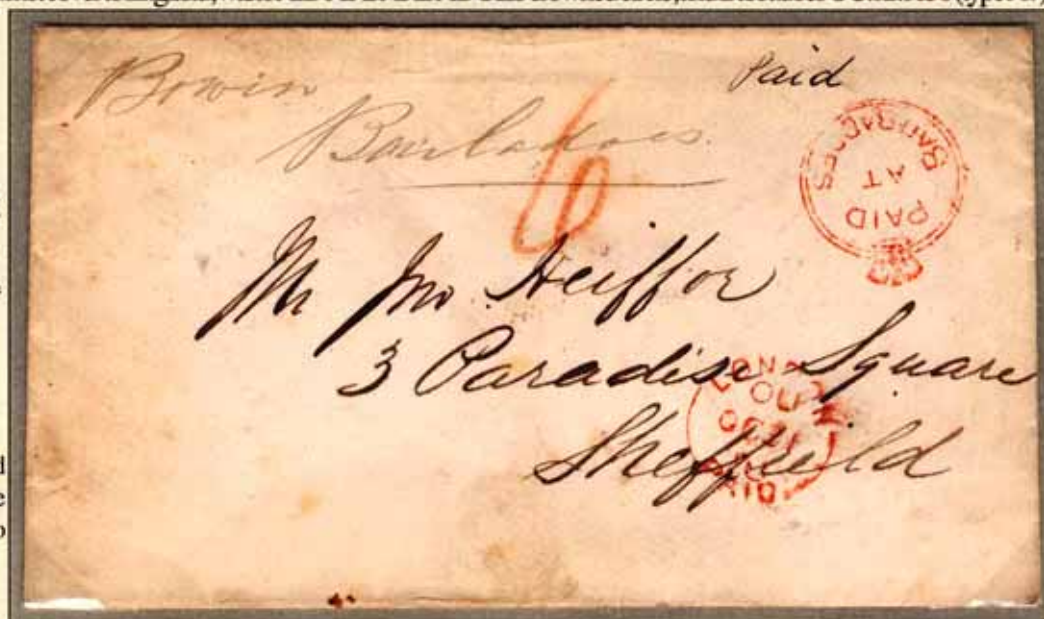 Paid
Barbadoes.
6
PAID
AT
BARBADOES
Mr Jno Heiffor
3 Paradise Square
Sheffield
LONDON
PAID